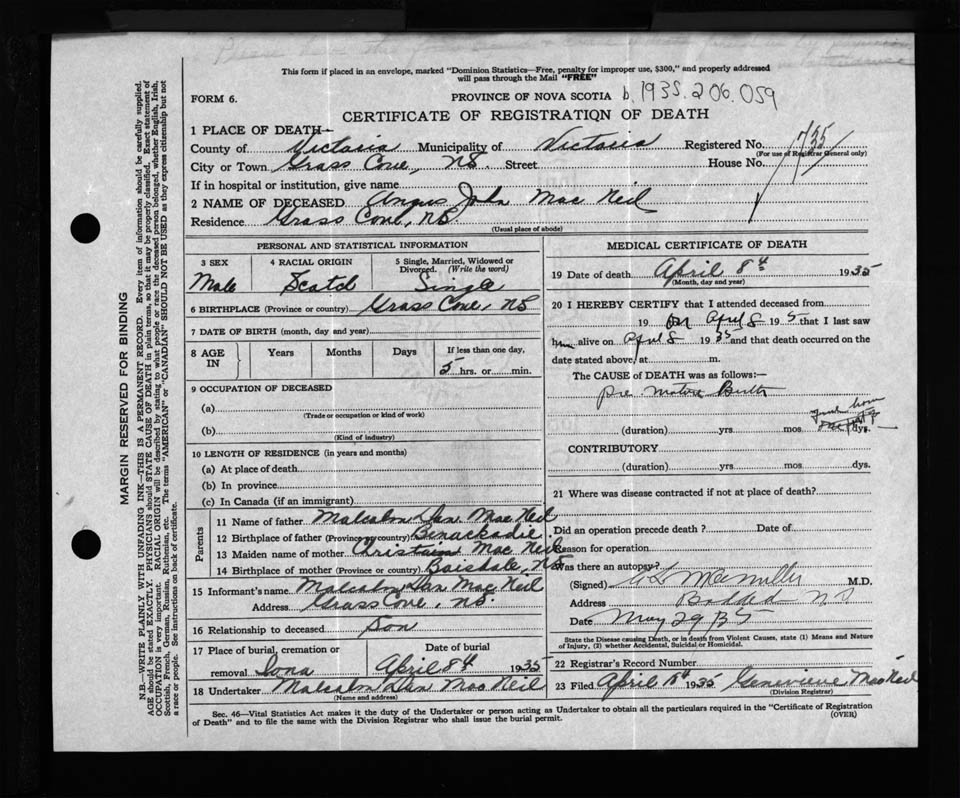 Please have this
This form if placed in an envelope, marked "Dominion Statistics—Free, penalty for improper use, $300," and properly addressed
will pass through the Mail "FREE"
FORM 6. PROVINCE OF NOVA SCOTIA b. 1935. 206.059
CERTIFICATE OF REGISTRATION OF DEATH
1 PLACE OF DEATH—
County of Victoria Municipality of Victoria Registered No. 735
(For use of Registrar General only)
City or Town Grass Cove, NS. Street House No.
If in hospital or institution, give name
2 NAME OF DECEASED Angus John Mac Neil
Residence Grass Cove, NS
(Usual place of abode)
PERSONAL AND STATISTICAL INFORMATION
3 SEX 4 RACIAL ORIGIN 5 Single, Married, Widowed or Divorced. (Write the word)
Male Scotch Single
6 BIRTHPLACE (Province or country) Grass Cove, NS
7 DATE OF BIRTH (month, day and year)
8 AGE IN Years Months Days If less than one day,
5 hrs. or min.
9 OCCUPATION OF DECEASED
(a)
(Trade or occupation or kind of work)
(b)
(Kind of industry)
10 LENGTH OF RESIDENCE (in years and months)
(a) At place of death
(b) In province
(c) In Canada (if an immigrant)
Parents
11 Name of father Malcolm Dan Mac Neil
12 Birthplace of father (Province or country) Benackadie
13 Maiden name of mother Mac Neil
14 Birthplace of mother (Province or country) Boisdale, NS
15 Informant's name Malcolm Dan Mac Neil
Address Grass Cove, NS.
16 Relationship to deceased Son
17 Place of burial, cremation or Date of burial
removal Iona April 8th 1935
18 Undertaker Malcolm Dan Mac Neil
(Name and address)
MEDICAL CERTIFICATE OF DEATH
19 Date of death April 8th 1935
(Month, day and year)
20 I HEREBY CERTIFY that I attended deceased from
19 on April 8 1935 that I last saw
him alive on April 8 1935 and that death occurred on the
date stated above, at m.
The CAUSE of DEATH was as follows:—
pre mature Birth
(duration) yrs mos dys.
CONTRIBUTORY
(duration) yrs mos. dys.
21 Where was disease contracted if not at place of death?
Did an operation precede death? Date of
Reason for operation
Was there an autopsy?
(Signed) M.D.
Address N.S.
Date May 29/35
State the Disease causing Death, or in death from Violent Causes, state (1) Means and Nature
of Injury, (2) whether Accidental, Suicidal or Homicidal.
22 Registrar's Record Number
23 Filed April 15th 1935 Genevieve MacNeil
(Division Registrar)
Sec. 46—Vital Statistics Act makes it the duty of the Undertaker or person acting as Undertaker to obtain all the particulars required in the "Certificate of Registration
of Death" and to file the same with the Division Registrar who shall issue the burial permit. (OVER)
MARGIN RESERVED FOR BINDING
N.B.—WRITE PLAINLY WITH UNFADING INK—THIS IS A PERMANENT RECORD. Every item of information should be carefully supplied.
AGE should be stated EXACTLY. PHYSICIANS should STATE CAUSE OF DEATH in plain terms, so that it may be properly classified. Exact statement of
OCCUPATION is very important. RACIAL ORIGIN will be described by stating to what people or race the deceased person belonged, whether English, Irish,
Scottish, French, German, Russian, Ruthenian, etc. The terms "AMERICAN" or "CANADIAN" SHOULD NOT BE USED as they express citizenship but not
a race or people. See instructions on back of certificate.